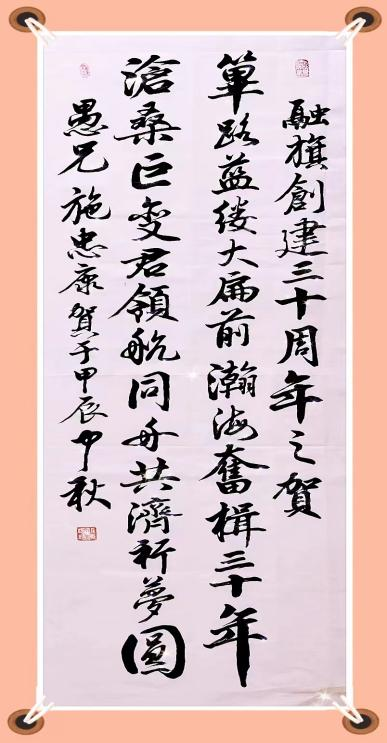 融旗創建三十周年之賀
篳路藍縷大扁前瀚海奮楫三十年
滄桑巨變君領航同舟共濟祈夢圓
愚兄施忠康賀于甲辰中秋